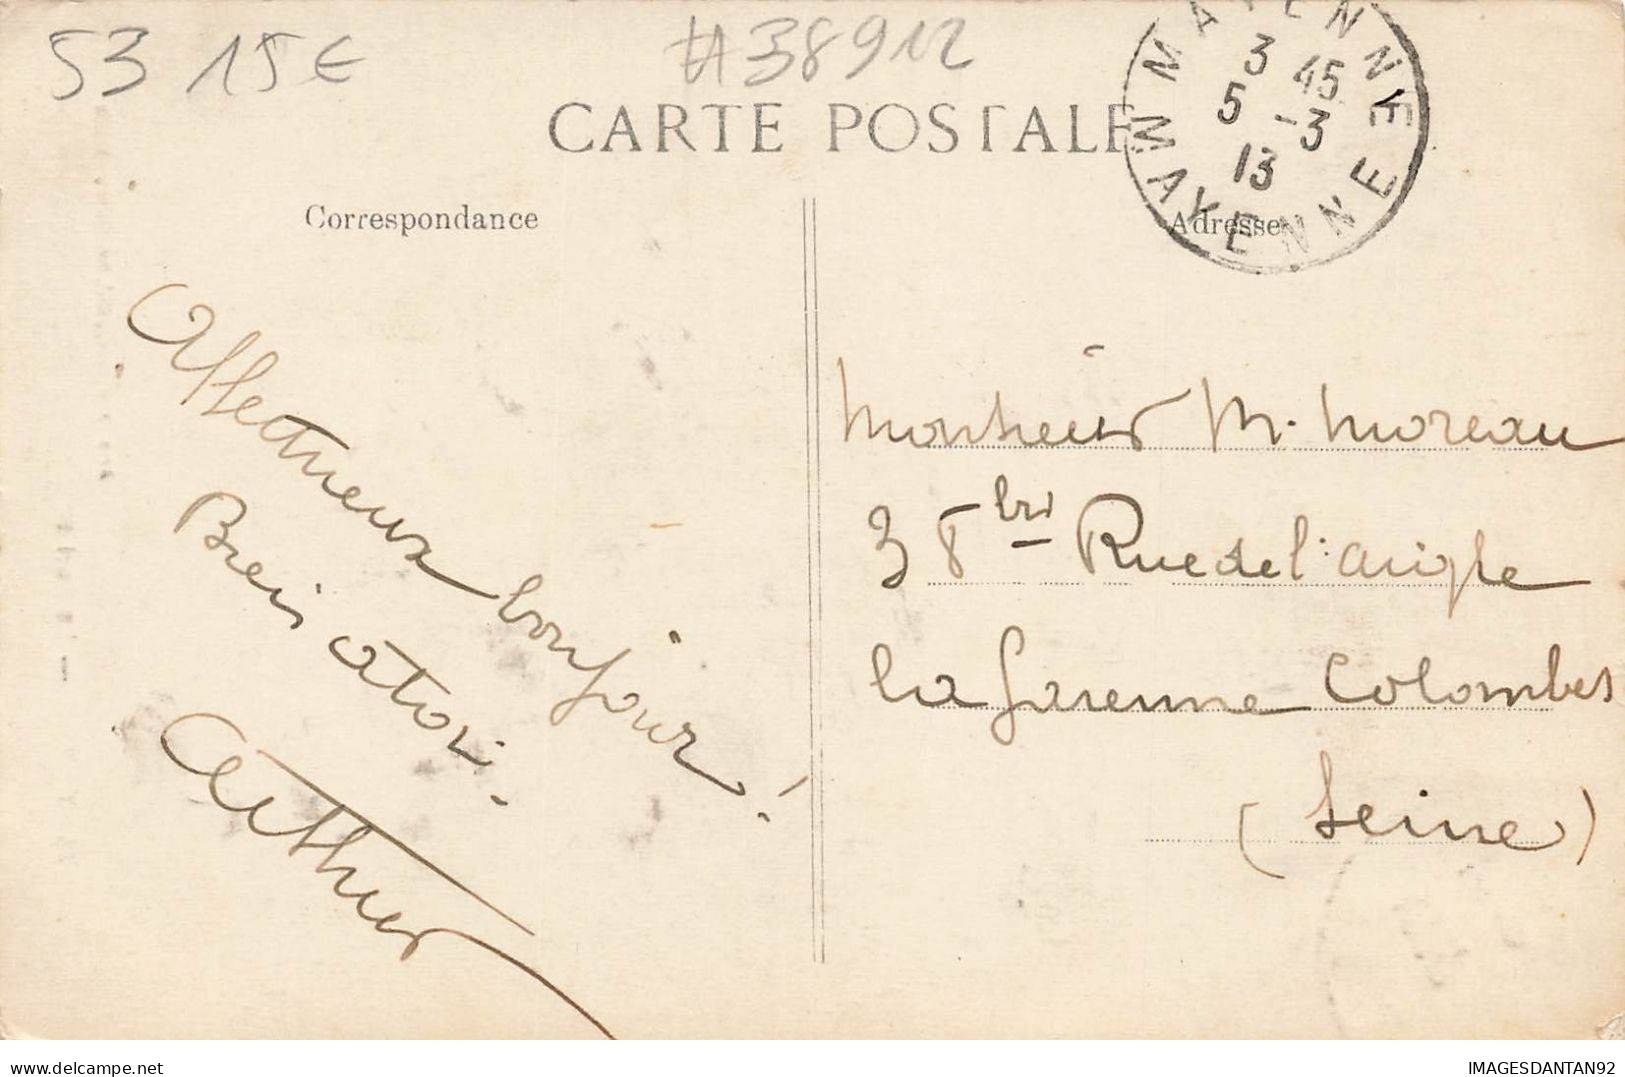 53 15€
#38912
CARTE POSTALE
MAYENNE
3 45
5 -3
13
MAYENNE
Correspondance
Adresse
Affectueux bonjour!
atoi.
Arthur
Monsieur M. Moreau
38 bis Rue de l'aigle
la Garenne Colombes
(Seine)
IMAGESDANTAN92